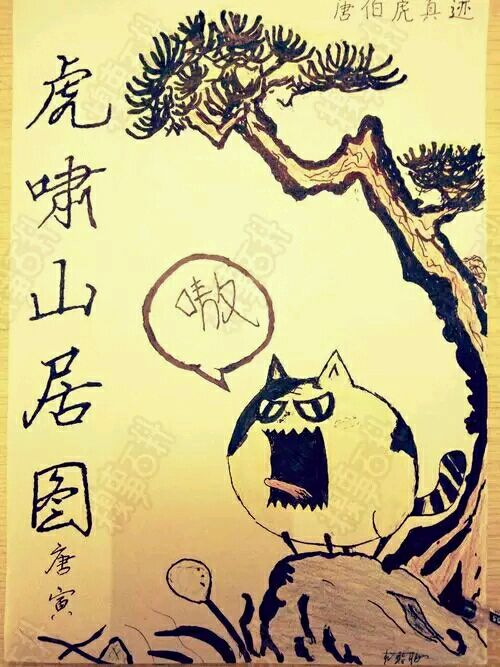 唐伯虎真迹
虎啸山居图
唐寅
嗷